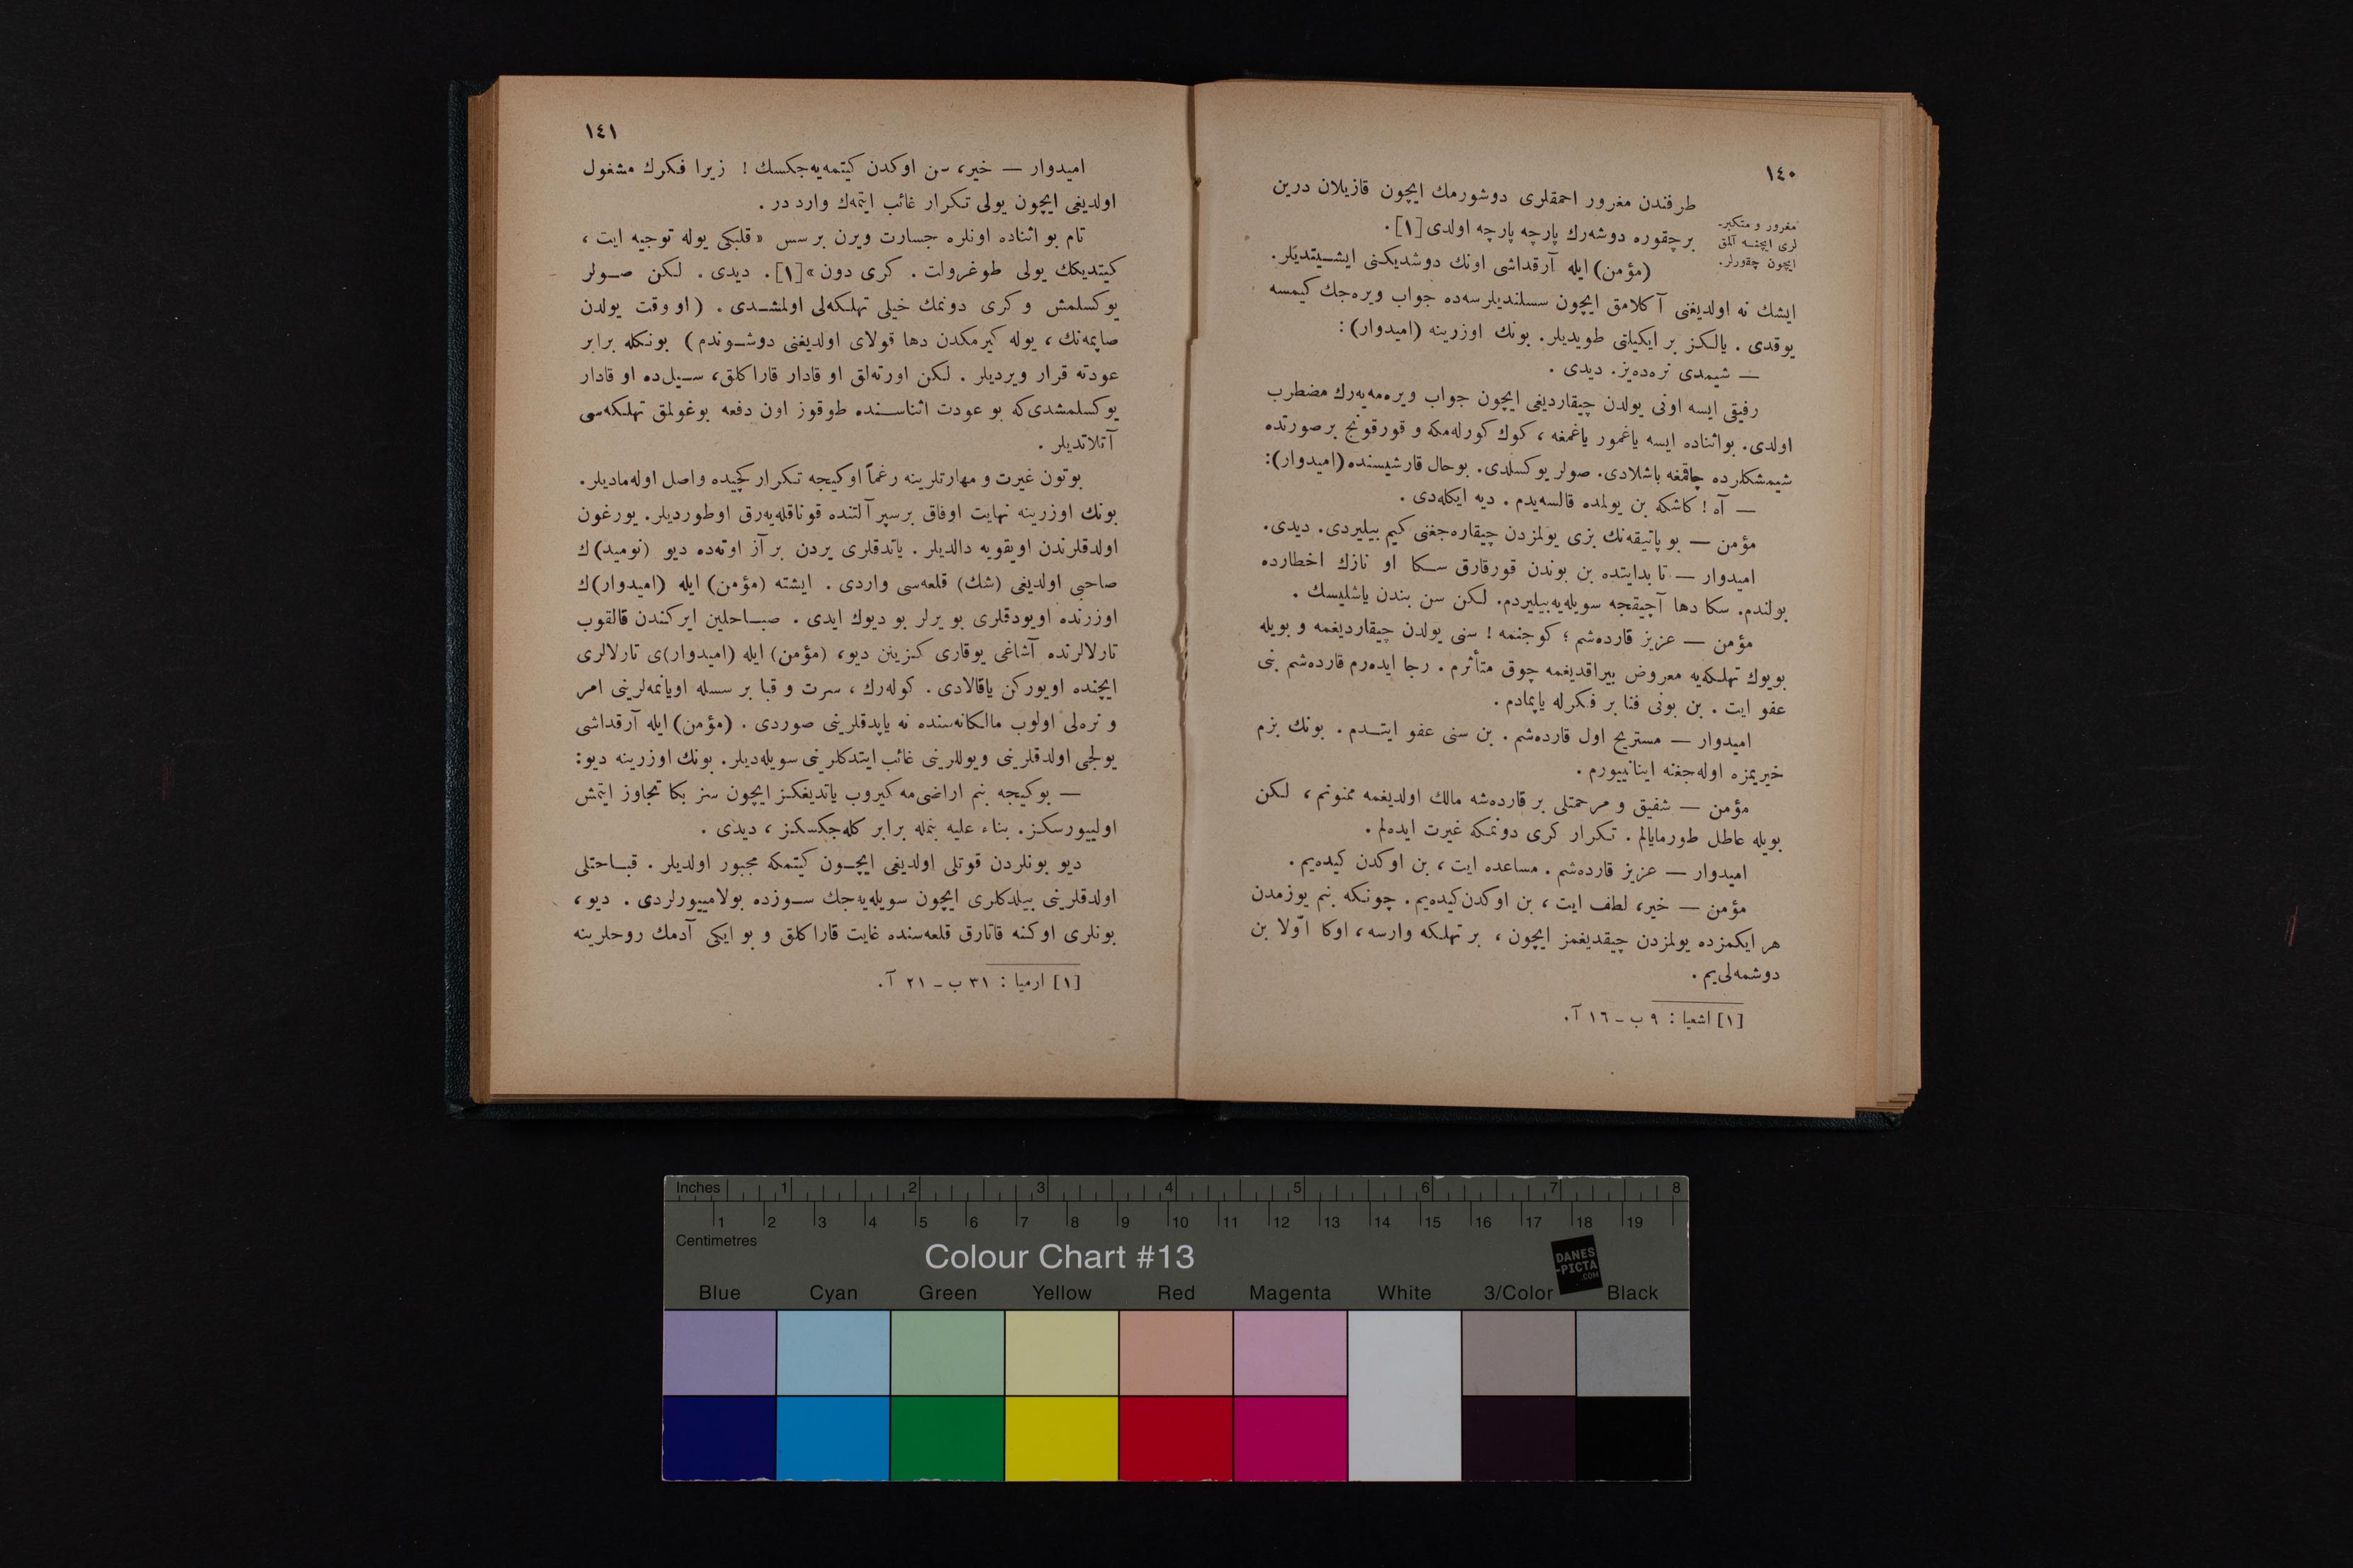 ١٤٠
طرفندن مغرور احمقلری دوشورمك ایچون قازیلان درین
برچقوره دوشه‌رك پارچه پارچه اولدی [١].
مغرور و متکبر-
لری ایچنه آلمق
ایچون چقورلر.
(مؤمن) ایله آرقداشی اونك دوشدیکنی ایشیتدیلر.
ایشك نه اولدیغنی آكلامق ایچون سسلندیلرسه‌ده جواب ویره‌جك کیمسه
یوقدی . یالکز بر ایکیلتی طویدیلر. بونك اوزرینه (امیدوار) :
— شیمدی نره‌ده‌یز. دیدی .
رفیقی ایسه اونی یولدن چیقاردیغی ایچون جواب ویره‌مه‌یه‌رك مضطرب
اولدی. بواثناده ایسه یاغمور یاغمغه ، کوك کورله‌مکه و قورقونج برصورتده
شیمشکلرده چاقمغه باشلادی. صولر یوکسلدی. بوحال قارشیسنده (امیدوار):
— آه ! کاشکه بن یولمده قالسه‌یدم . دیه ایکله‌دی .
مؤمن — بو پاتیقه‌نك بزی یولمزدن چیقاره‌جغنی کیم بیلیردی. دیدی.
امیدوار — تا بدایتده بن بوندن قورقارق سكا او نازك اخطارده
بولندم. سكا دها آچیقجه سویله‌یه‌بیلیردم. لکن سن بندن یاشلیسك .
مؤمن — عزیز قارده‌شم ؛ کوجنمه ! سنی یولدن چیقاردیغمه و بویله
بویوك تهلکه‌یه معروض بیراقدیغمه چوق متأثرم . رجا ایده‌رم قارده‌شم بنی
عفو ایت . بن بونی فنا بر فکرله یاپمادم .
امیدوار — مستریح اول قارده‌شم . بن سنی عفو ایتدم . بونك بزم
خیریمزه اوله‌جغنه اینانییورم .
مؤمن — شفیق و مرحمتلی بر قارده‌شه مالك اولدیغمه ممنونم ، لکن
بویله عاطل طورمایالم . تکرار کری دونمکه غیرت ایده‌لم .
امیدوار — عزیز قارده‌شم . مساعده ایت ، بن اوكدن کیده‌یم .
مؤمن — خیر، لطف ایت ، بن اوكدن کیده‌یم . چونکه بنم یوزمدن
هر ایکمزده یولمزدن چیقدیغمز ایچون ، بر تهلکه وارسه ، اوكا اوّلا بن
دوشمه‌لی‌یم .
[١] اشعیا : ٩ ب - ١٦ آ.
١٤١
امیدوار — خیر، سن اوكدن کیتمه‌یه‌جکسك ! زیرا فکرك مشغول
اولدیغی ایچون یولی تکرار غائب ایتمه‌ك وارد در .
تام بو اثناده اونلره جسارت ویرن بر سس « قلبکی یوله توجیه ایت ،
کیتدیکك یولی طوغرولت . کری دون » [١]. دیدی . لکن صولر
یوکسلمش و کری دونمك خیلی تهلکه‌لی اولمشدی . ( او وقت یولدن
صاپمه‌نك ، یوله کیرمکدن دها قولای اولدیغنی دوشوندم ) بونکله برابر
عودته قرار ویردیلر . لکن اورته‌لق او قادار قاراكلق، سیل‌ده او قادار
یوکسلمشدی‌که بو عودت اثناسنده طوقوز اون دفعه بوغولمق تهلکه‌سی
آتلاتدیلر .
بوتون غیرت و مهارتلرینه رغماً اوکیجه تکرار کچیده واصل اوله‌مادیلر.
بونك اوزرینه نهایت اوفاق برسپر آلتنده قوناقله‌یه‌رق اوطوردیلر. یورغون
اولدقلرندن اویقویه دالدیلر . یاتدقلری یردن بر آز اوته‌ده دیو (نومید)ك
صاحبی اولدیغی (شك) قلعه‌سی واردی . ایشته (مؤمن) ایله (امیدوار)ك
اوزرنده اویودقلری بو یرلر بو دیوك ایدی . صباحلین ایرکندن قالقوب
تارلالرنده آشاغی یوقاری کزینن دیو، (مؤمن) ایله (امیدوار)ی تارلالری
ایچنده اویورکن یاقالادی . کوله‌رك ، سرت و قبا بر سسله اویانمه‌لرینی امر
و نره‌لی اولوب مالکانه‌سنده نه یاپدقلرینی صوردی . (مؤمن) ایله آرقداشی
یولجی اولدقلرینی ویوللرینی غائب ایتدکلرینی سویله‌دیلر. بونك اوزرینه دیو:
— بوکیجه بنم اراضی‌مه کیروب یاتدیغکز ایچون سز بكا تجاوز ایتمش
اولییورسکز. بناء علیه بنمله برابر کله‌جکسکز ، دیدی .
دیو بونلردن قوتلی اولدیغی ایچون کیتمکه مجبور اولدیلر . قباحتلی
اولدقلرینی بیلدکلری ایچون سویله‌یه‌جك سوزده بولامییورلردی . دیو ،
بونلری اوكنه قاتارق قلعه‌سنده غایت قاراكلق و بو ایکی آدمك روحلرینه
[١] ارمیا : ٣١ ب - ٢١ آ.
Inches 1 2 3 4 5 6 7 8
1 2 3 4 5 6 7 8 9 10 11 12 13 14 15 16 17 18 19
Centimetres
Colour Chart #13
DANES
-PICTA
.COM
Blue Cyan Green Yellow Red Magenta White 3/Color Black